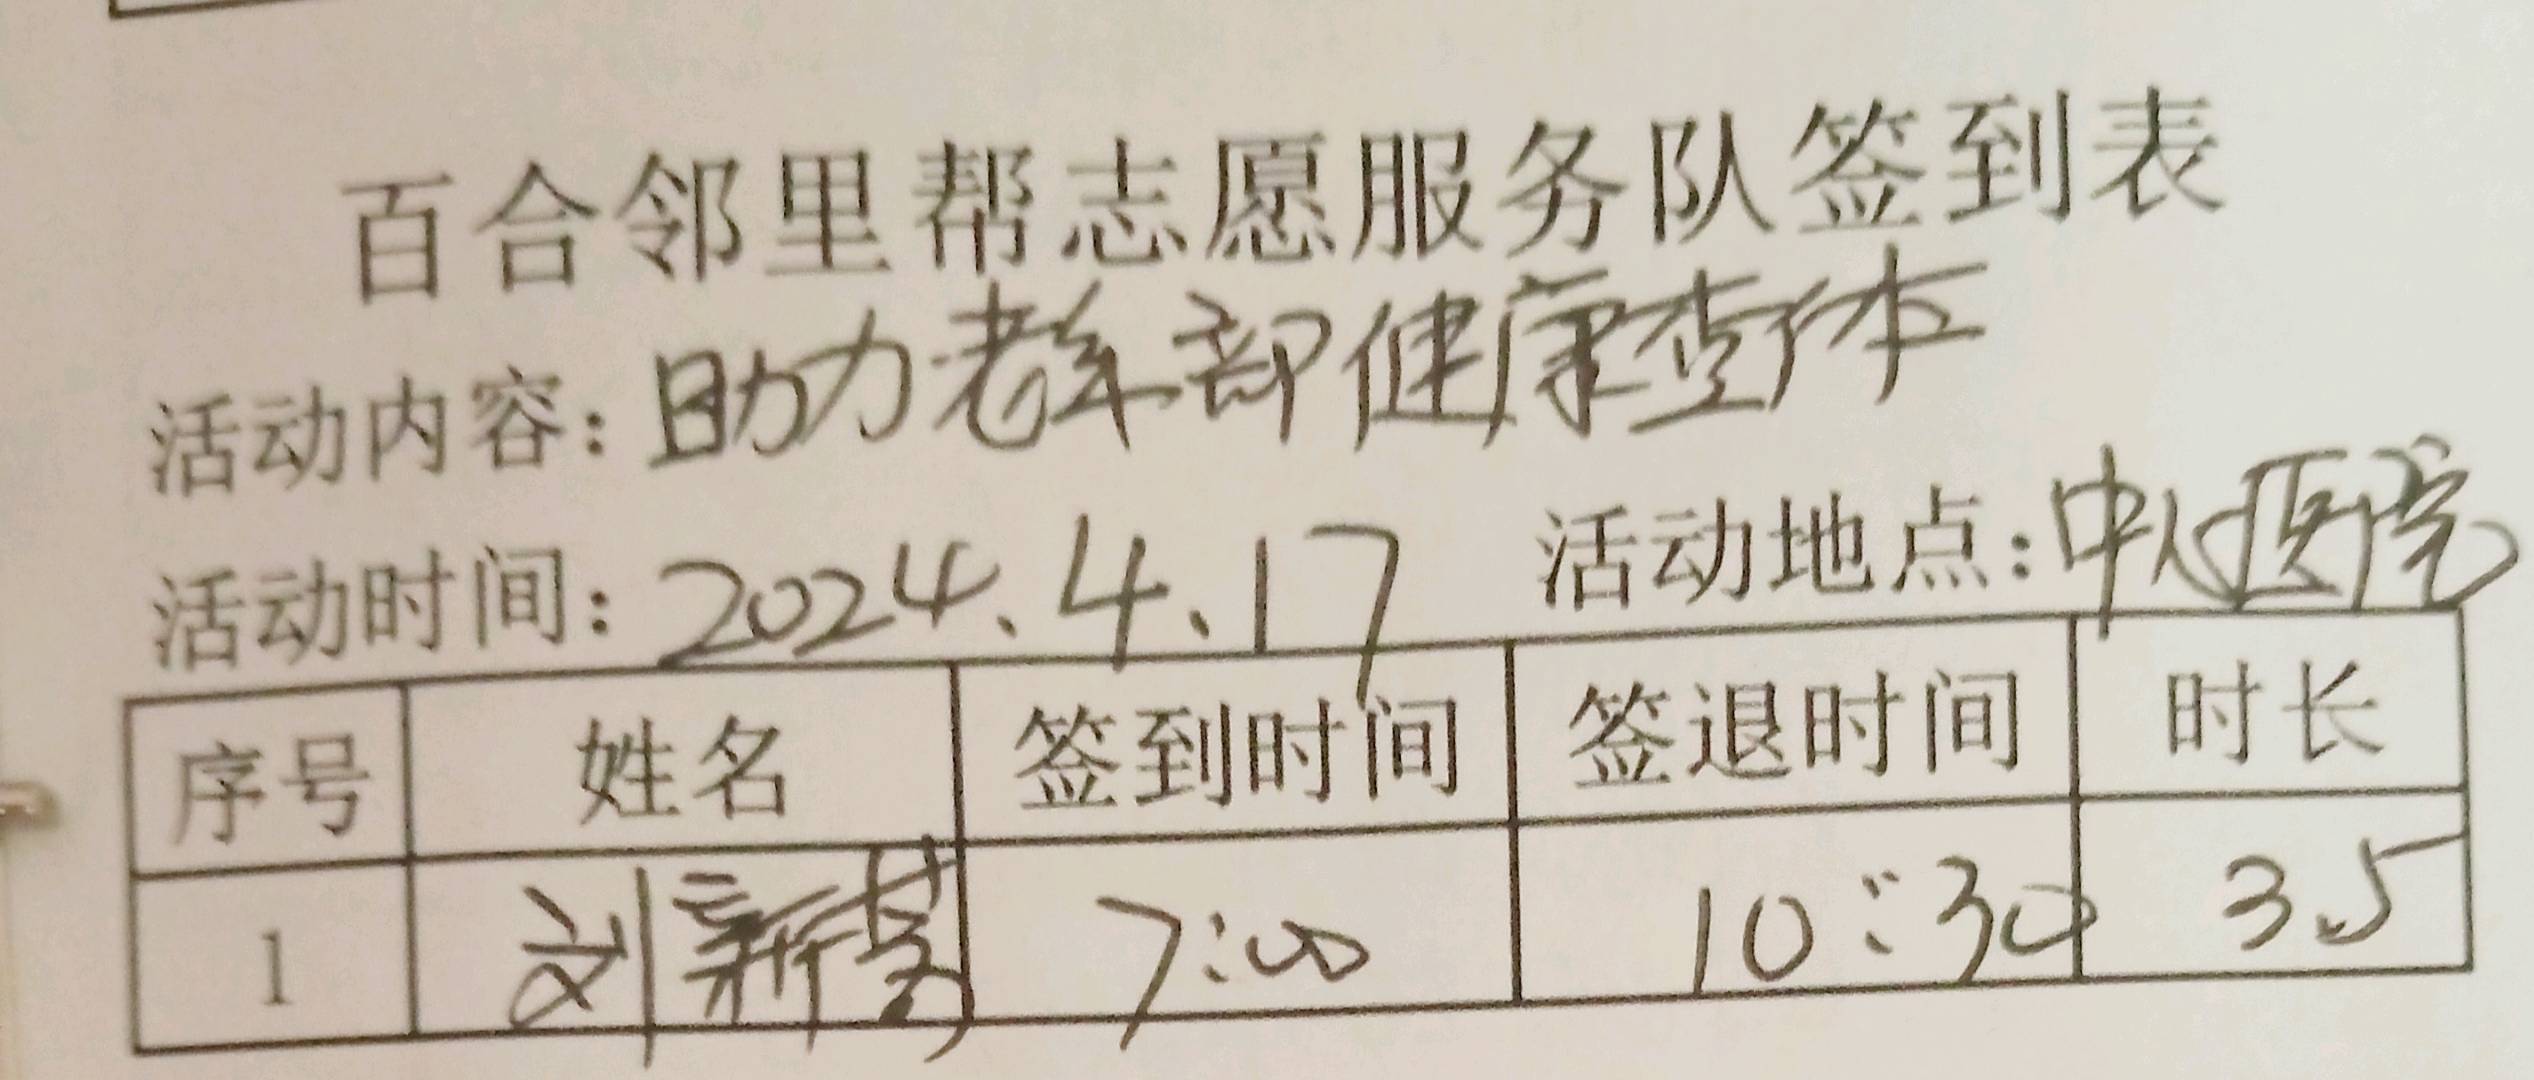 百合邻里帮志愿服务队签到表
活动内容：助力老年部健康查体
活动时间：2024.4.17 活动地点：中心医院
序号 姓名 签到时间 签退时间 时长
1 刘新 7:00 10:30 3.5